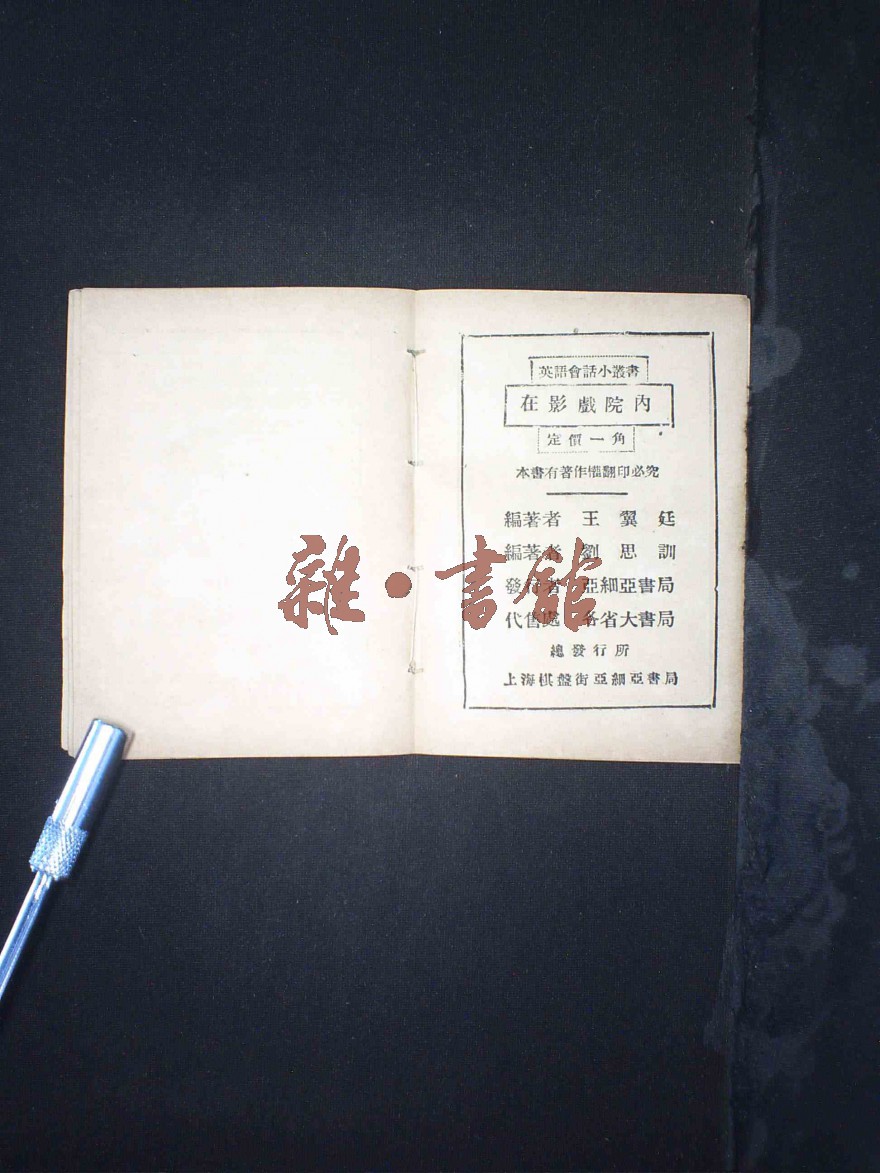 英語會話小叢書
在影戲院內
定價一角
本書有著作權翻印必究
編著者 王翼廷
編著者 劉思訓
發行者 亞細亞書局
代售處 各省大書局
總發行所
上海棋盤街亞細亞書局
雜·書館